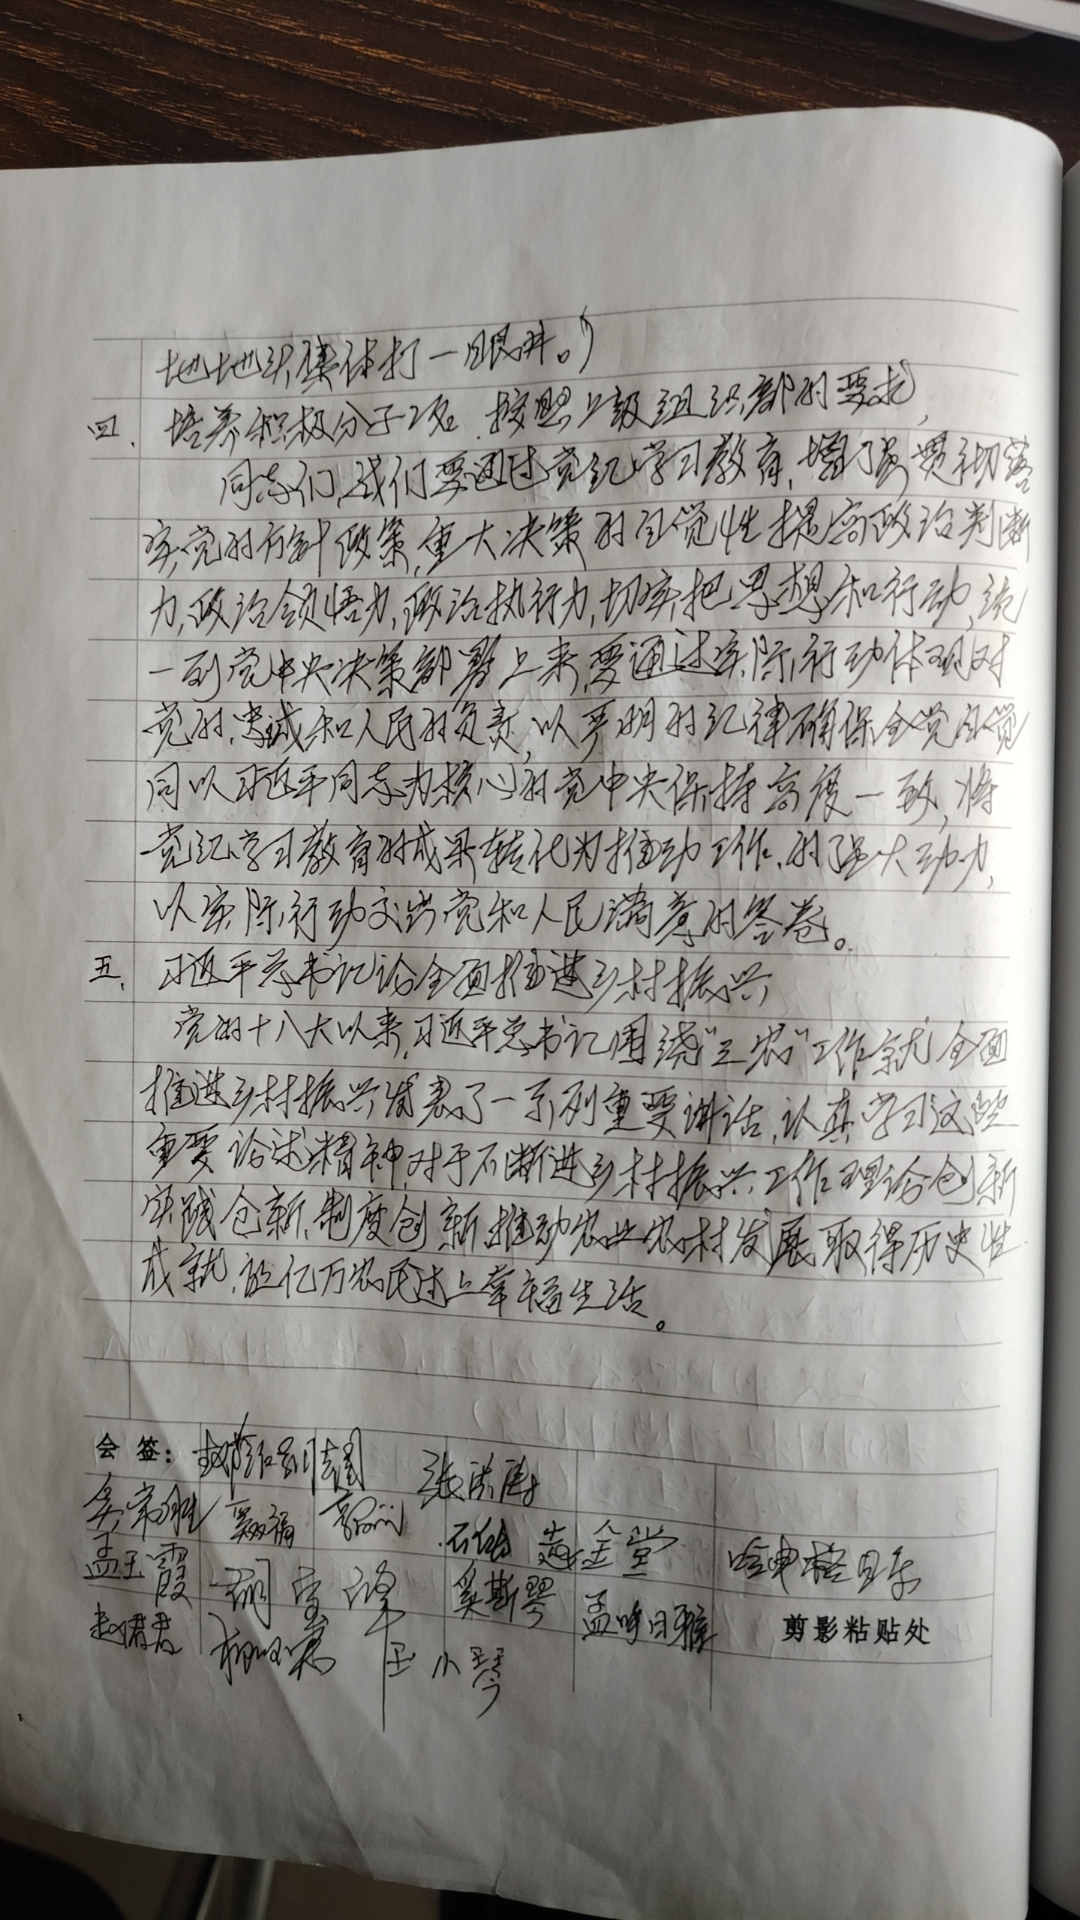 地地头,集体打一眼井。)
四. 培养积极分子2名.按照上级组织部的要求,
同志们,我们要通过党纪学习教育,增强贯彻落
实,党的方针政策,重大决策的自觉性提高政治判断
力,政治领悟力,政治执行力,切实把思想和行动,统
一到党中央决策部署上来,要通过实际行动体现对
党的忠诚和人民的负责,以严明的纪律确保全党自觉
同以习近平同志为核心的党中央保持高度一致,将
党纪学习教育的成果转化为推动工作的强大动力,
以实际行动交出党和人民满意的答卷。
五. 习近平总书记论全面推进乡村振兴
党的十八大以来,习近平总书记围绕"三农"工作就全面
推进乡村振兴发表了一系列重要讲话,认真学习这些
重要论述精神,对于不断进乡村振兴工作理论创新
实践创新,制度创新,推动农业农村发展取得历史性
成就,让亿万农民过上幸福生活。
会 签:
赵金堂
孟玉霞 胡宝峰 奚斯琴
王小琴
剪影粘贴处